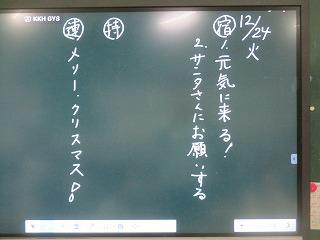 12/24
火
宿 1. 元気に来る!
2. サンタさんにお願いする
持
連 メリー・クリスマス
KKH GYS